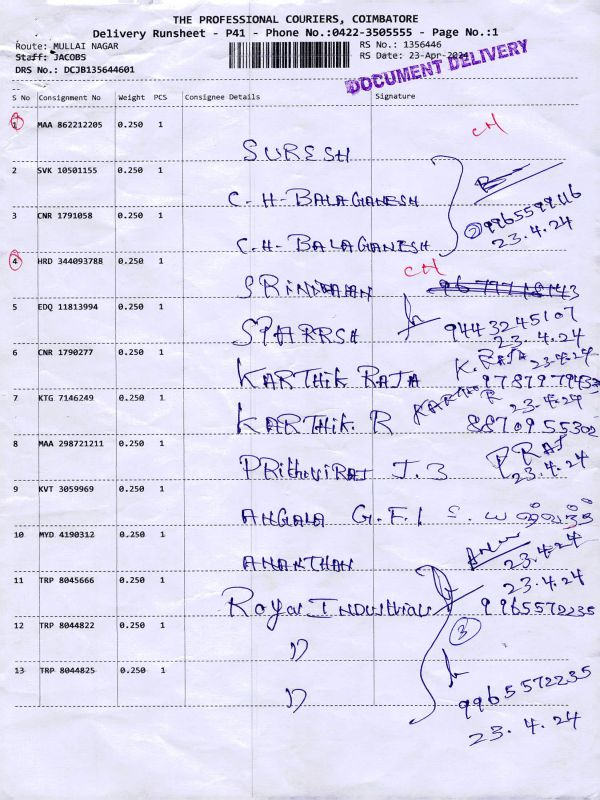 THE PROFESSIONAL COURIERS, COIMBATORE
Delivery Runsheet - P41 - Phone No.:0422-3505555 - Page No.:1
Route: MULLAI NAGAR
RS No.: 1356446
Staff: JACOBS
RS Date: 23-Apr-2024
DRS No.: DCJB135644601
DOCUMENT DELIVERY
S No Consignment No Weight PCS Consignee Details Signature
1 MAA 862212205 0.250 1 SURESH CH
2 SVK 10501155 0.250 1 C.H-BALAGANESH
3 CNR 1791058 0.250 1 C.H-BALAGANESH
② 9965599116
23.4.24
4 HRD 344093788 0.250 1 CH
5 EDQ 11813994 0.250 1 9443245107
23.4.24
6 CNR 1790277 0.250 1 KARTHIK RAJA K.RAJA 23.4.24
7 KTG 7146249 0.250 1 KARTHIK.R KARTHIK R 23.4.24
8870955302
8 MAA 298721211 0.250 1 PRITHVIRAJ J.B P RAJ
23.4.24
9 KVT 3059969 0.250 1 ANGALA G.F.I
10 MYD 4190312 0.250 1 ANANTHAN 23.4.24
11 TRP 8045666 0.250 1 Royal INDUSTRIAL 23.4.24
9965572235
12 TRP 8044822 0.250 1 ③
13 TRP 8044825 0.250 1
9965572235
23.4.24